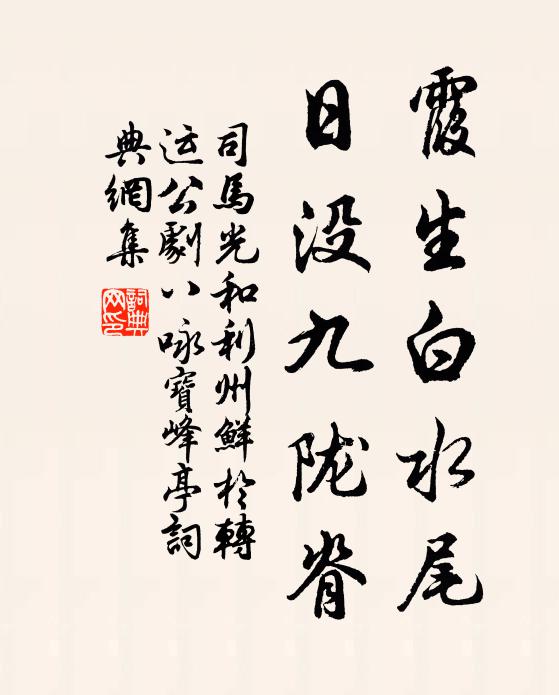 霞生白水尾
日没九陇脊
司馬光和利州鮮於轉
运公劇八咏寶峰亭詞
典網集
詞典
网印